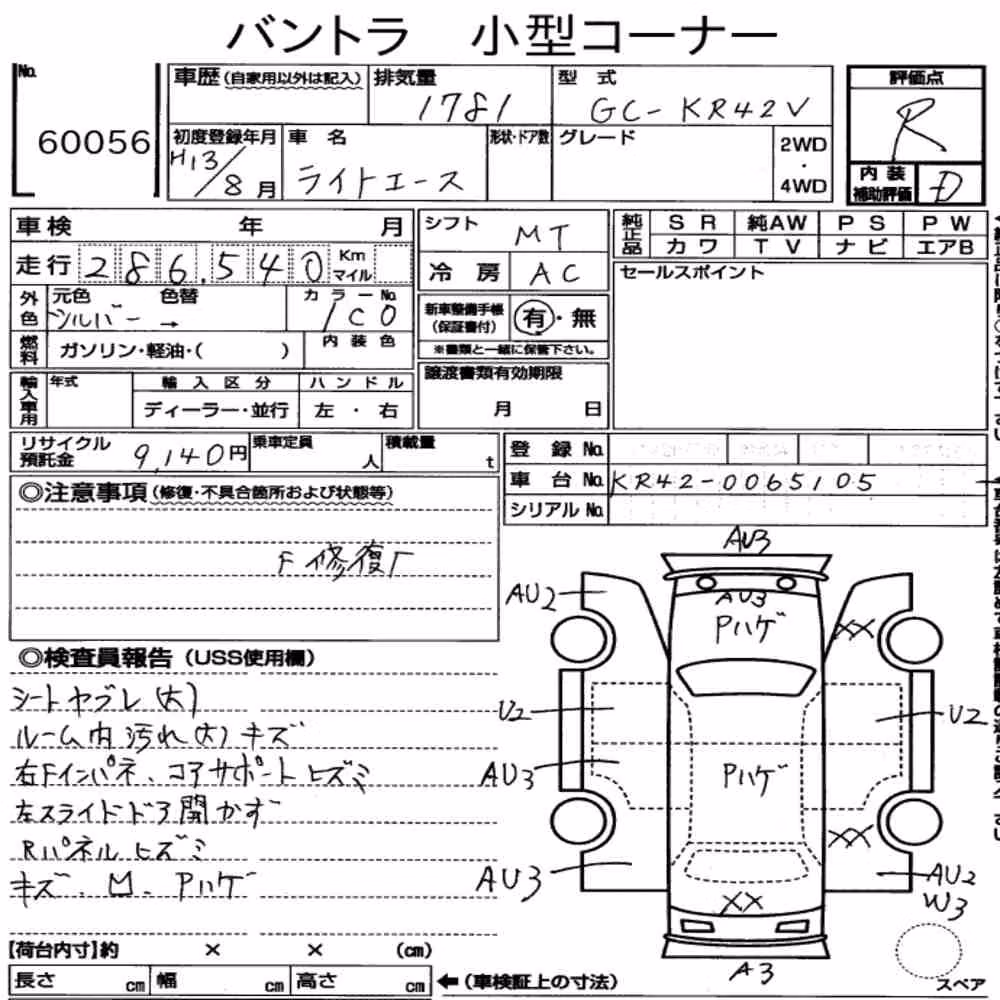 バントラ 小型コーナー
No.
60056
車歴(自家用以外は記入)
排気量
1781
型式
GC-KR42V
評価点
R
初度登録年月
H13/8月
車名
ライトエース
形状・ドア数
グレード
2WD
・
4WD
内装
補助評価
D
車検 年 月
走行 286,540 Km
マイル
外色
元色 色替
シルバー →
カラーNo.
1C0
燃料
ガソリン・軽油・( )
内装色
輸入車用
年式
輸入区分
ハンドル
ディーラー・並行
左・右
シフト
MT
冷房
AC
新車整備手帳
(保証書付)
有・無
※書類と一緒に保管下さい。
譲渡書類有効期限
月 日
純正品
SR 純AW PS PW
カワ TV ナビ エアB
セールスポイント
リサイクル
預託金
9,140円
乗車定員
人
積載量
t
登録No.
車台No. KR42-0065105
シリアルNo.
◎注意事項(修復・不具合箇所および状態等)
F修復
◎検査員報告(USS使用欄)
シートヤブレ(大)
ルーム内汚れ(大)キズ
右Fインパネ、コアサポートヒズミ
左スライドドア開かず
Rパネルヒズミ
キズ、凹、Pハゲ
AU3
AU2
AU3
Pハゲ
XX
U2
U2
AU3
Pハゲ
XX
AU3
AU2
W3
XX
A3
スペア
【荷台内寸】約 × × (cm)
長さ cm 幅 cm 高さ cm ←(車検証上の寸法)